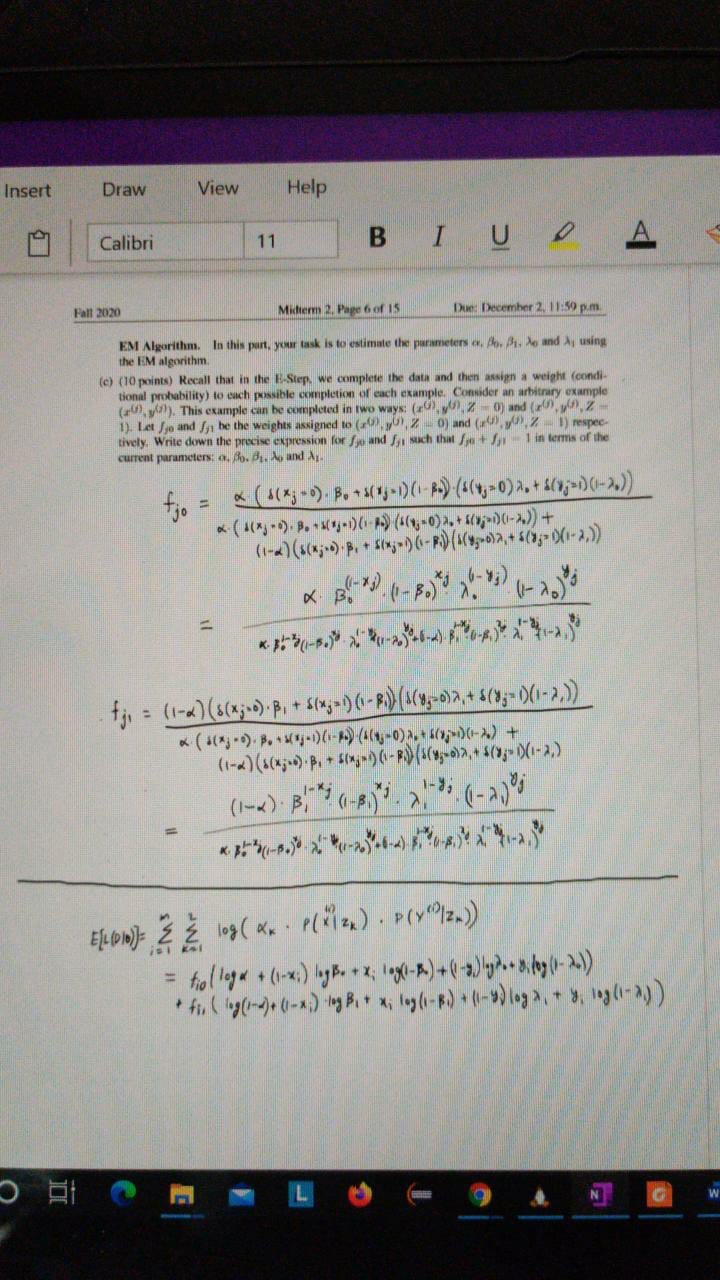 Insert Draw View Help
Calibri 11 B I U A
Fall 2020 Midterm 2, Page 6 of 15 Due: December 2, 11:59 p.m.
EM Algorithm. In this part, your task is to estimate the parameters α, β₀, β₁, λ₀ and λ₁ using
the EM algorithm.
(c) (10 points) Recall that in the E-Step, we complete the data and then assign a weight (condi-
tional probability) to each possible completion of each example. Consider an arbitrary example
(x⁽ʲ⁾, y⁽ʲ⁾). This example can be completed in two ways: (x⁽ʲ⁾, y⁽ʲ⁾, Z = 0) and (x⁽ʲ⁾, y⁽ʲ⁾, Z =
1). Let fⱼ₀ and fⱼ₁ be the weights assigned to (x⁽ʲ⁾, y⁽ʲ⁾, Z = 0) and (x⁽ʲ⁾, y⁽ʲ⁾, Z = 1) respec-
tively. Write down the precise expression for fⱼ₀ and fⱼ₁ such that fⱼ₀ + fⱼ₁ = 1 in terms of the
current parameters: α, β₀, β₁, λ₀ and λ₁.
fⱼ₀ = α·(δ(xⱼ=0)·β₀+δ(xⱼ=1)(1-β₀))·(δ(yⱼ=0)λ₀+δ(yⱼ=1)(1-λ₀))
α·(δ(xⱼ=0)·β₀+δ(xⱼ=1)(1-β₀))·(δ(yⱼ=0)λ₀+δ(yⱼ=1)(1-λ₀)) +
(1-α)(δ(xⱼ=0)·β₁+δ(xⱼ=1)(1-β₁))(δ(yⱼ=0)λ₁+δ(yⱼ=1)(1-λ₁))
= α·β₀^(1-xⱼ)·(1-β₀)^xⱼ·λ₀^(1-yⱼ)·(1-λ₀)^yⱼ
α·β₀^(1-xⱼ)(1-β₀)^xⱼ·λ₀^(1-yⱼ)(1-λ₀)^yⱼ+(1-α)·β₁^(1-xⱼ)·(1-β₁)^xⱼ·λ₁^(1-yⱼ)(1-λ₁)^yⱼ
fⱼ₁ = (1-α)(δ(xⱼ=0)·β₁+δ(xⱼ=1)(1-β₁))(δ(yⱼ=0)λ₁+δ(yⱼ=1)(1-λ₁))
α·(δ(xⱼ=0)·β₀+δ(xⱼ=1)(1-β₀))·(δ(yⱼ=0)λ₀+δ(yⱼ=1)(1-λ₀) +
(1-α)(δ(xⱼ=0)·β₁+δ(xⱼ=1)(1-β₁))(δ(yⱼ=0)λ₁+δ(yⱼ=1)(1-λ₁)
= (1-α)·β₁^(1-xⱼ)·(1-β₁)^xⱼ·λ₁^(1-yⱼ)·(1-λ₁)^yⱼ
α·β₀^(1-xⱼ)(1-β₀)^xⱼ·λ₀^(1-yⱼ)(1-λ₀)^yⱼ+(1-α)·β₁^(1-xⱼ)·(1-β₁)^xⱼ·λ₁^(1-yⱼ)(1-λ₁)^yⱼ
E[L(D|θ)]= Σ_(i=1)^n Σ_(k=1)^2 log(αₖ · P(x⁽ⁱ⁾|zₖ) · P(y⁽ⁱ⁾|zₖ))
= fᵢ₀(logα + (1-xᵢ) logβ₀ + xᵢ log(1-β₀)+(1-yᵢ)logλ₀+yᵢ log(1-λ₀))
+ fᵢ₁( log(1-α)+(1-xᵢ)·logβ₁ + xᵢ log(1-β₁)+(1-yᵢ)logλ₁ + yᵢ log(1-λ₁))
L N G W